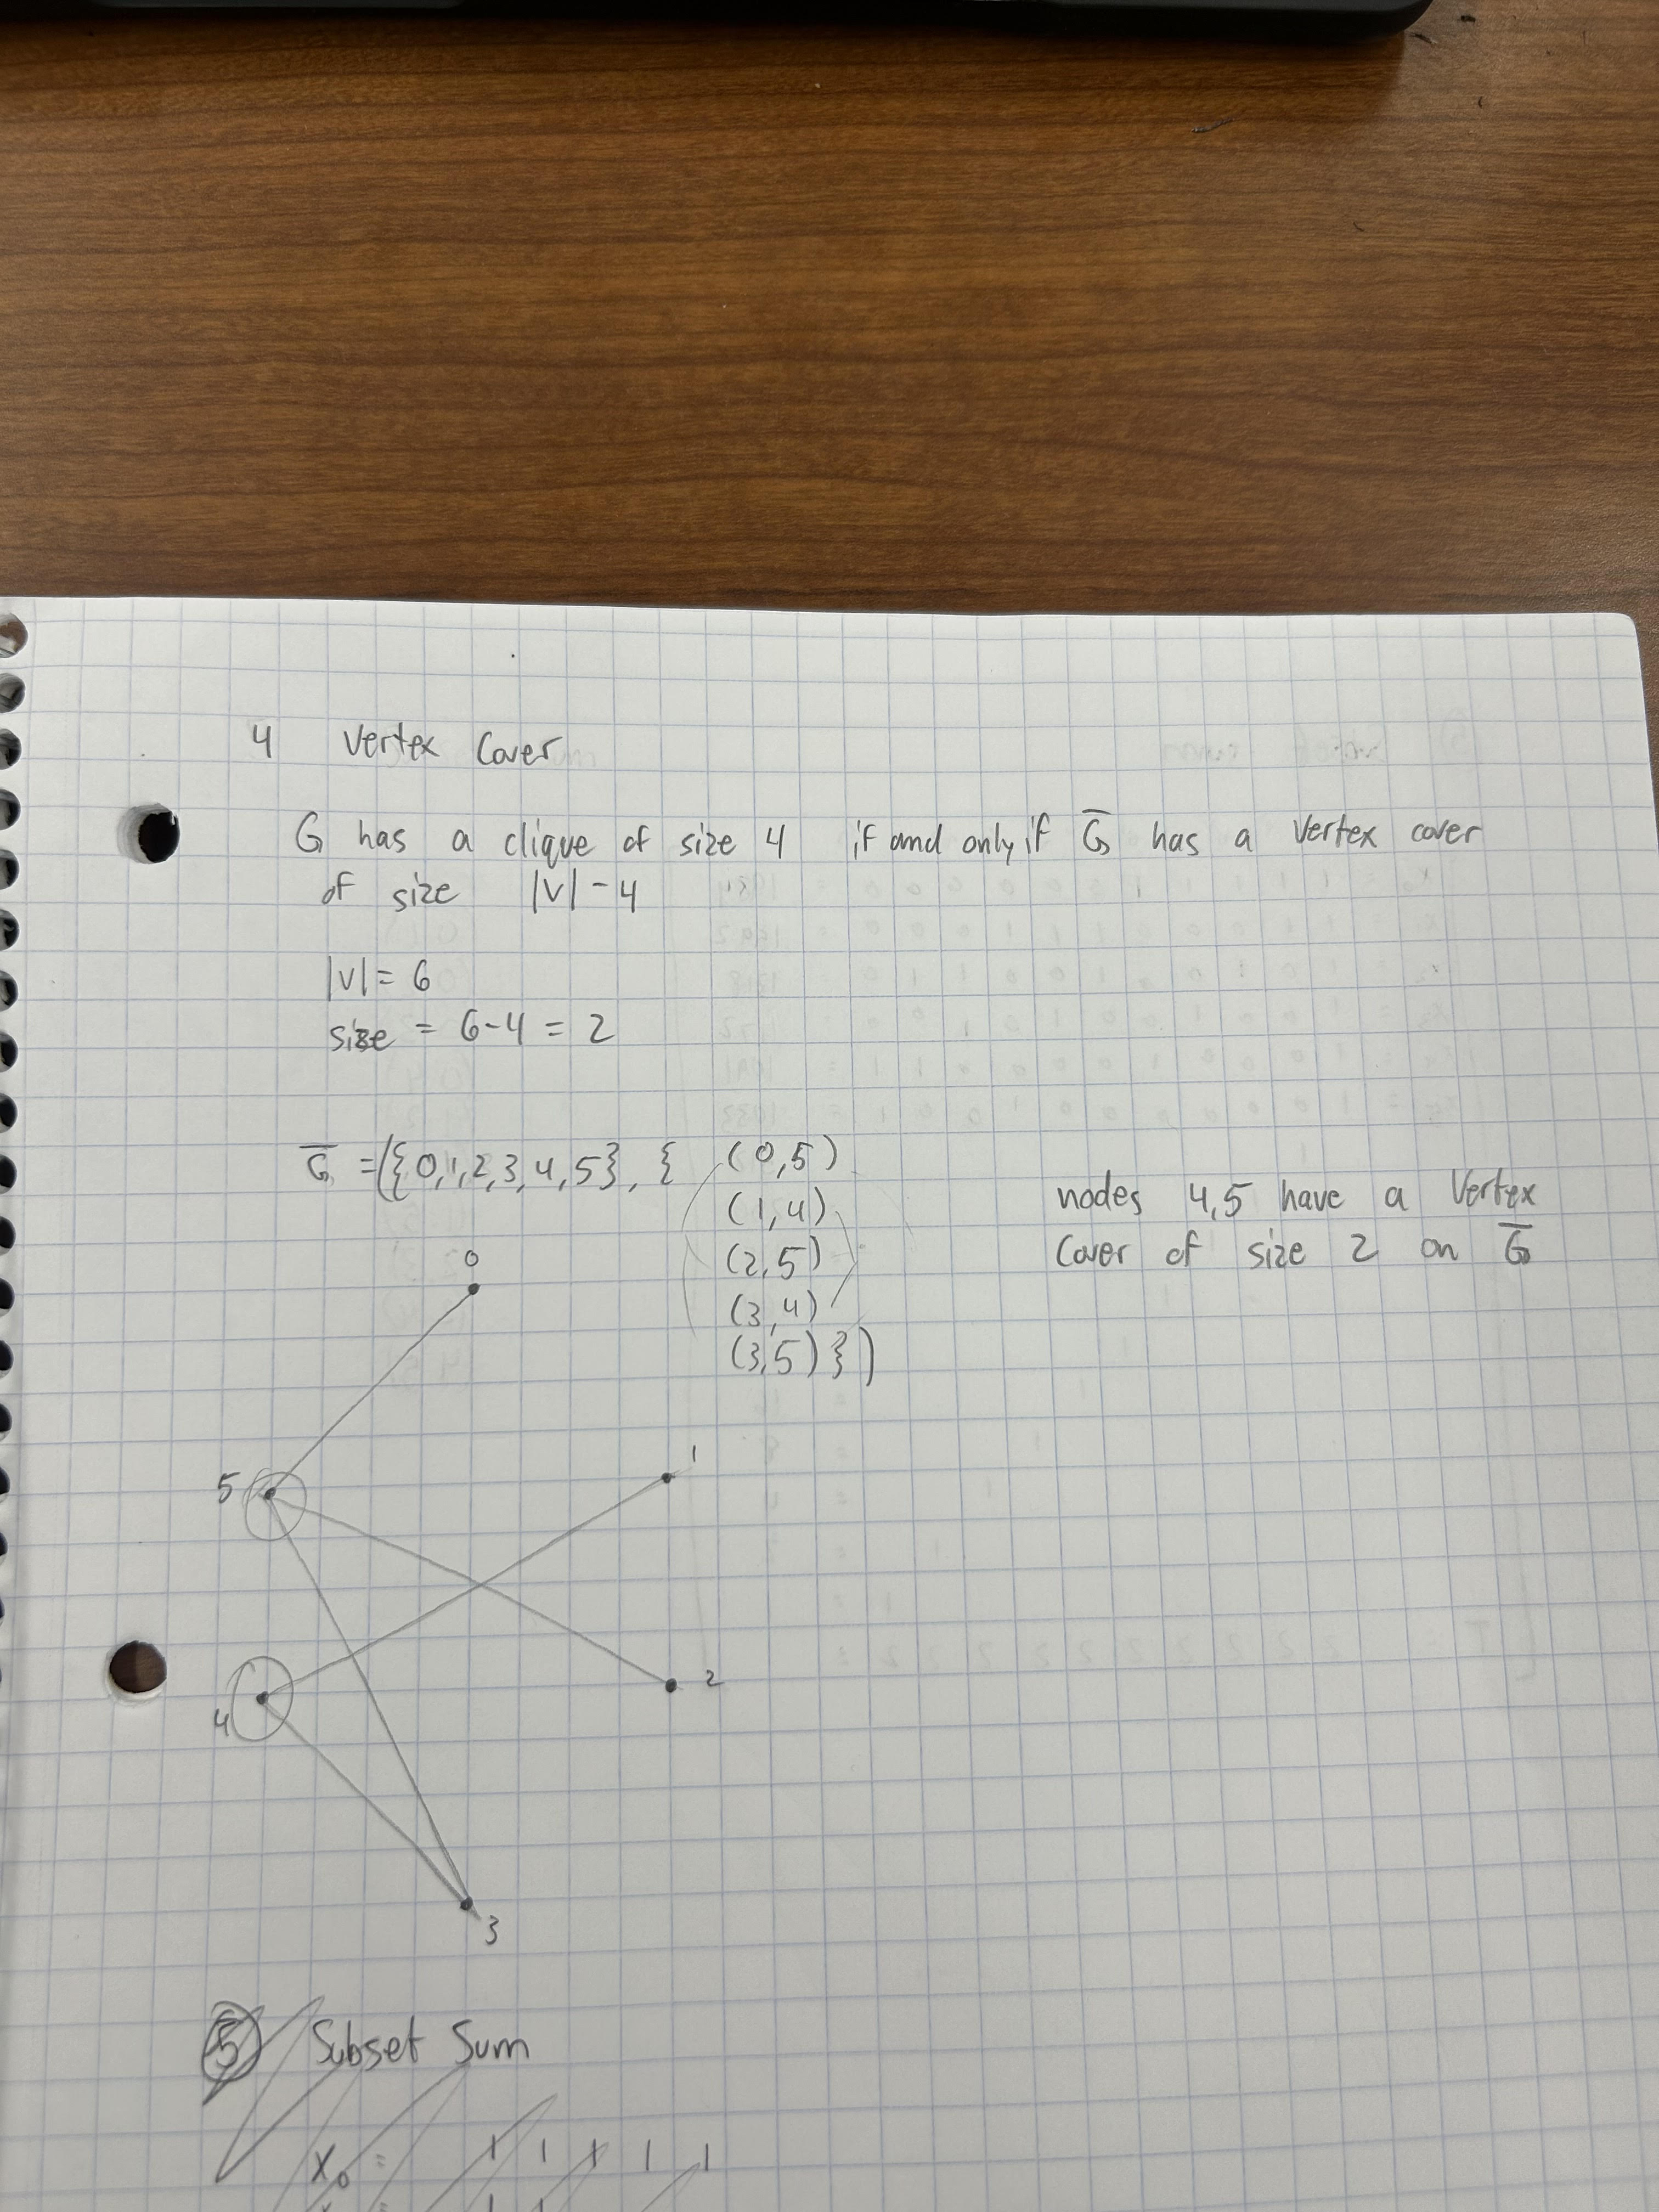 4 Vertex Cover
G has a clique of size 4 if and only if G̅ has a Vertex cover
of size |V| - 4
|V| = 6
size = 6-4 = 2
G̅ = ({0,1,2,3,4,5}, { (0,5)
(1,4)
(2,5)
(3,4)
(3,5) })
nodes 4,5 have a Vertex
Cover of size 2 on G̅
0
1
5
2
4
3
5 Subset Sum
x₀ = 1 1 1 1 1